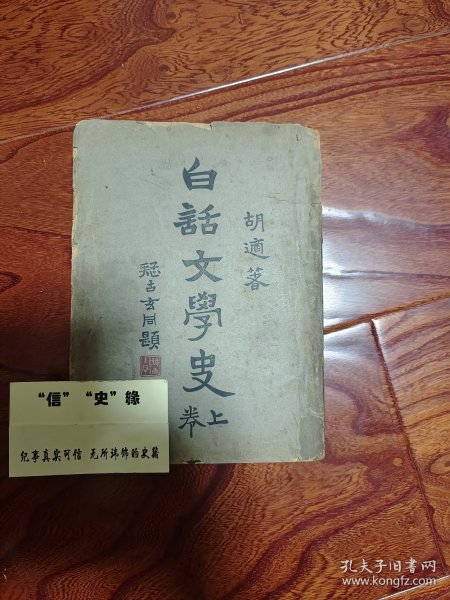 胡適著
白話文學史
上卷
疑古玄同題
“信” “史”緣
纪事真实可信 无所讳饰的史籍
孔夫子旧书网
www.kongfz.com